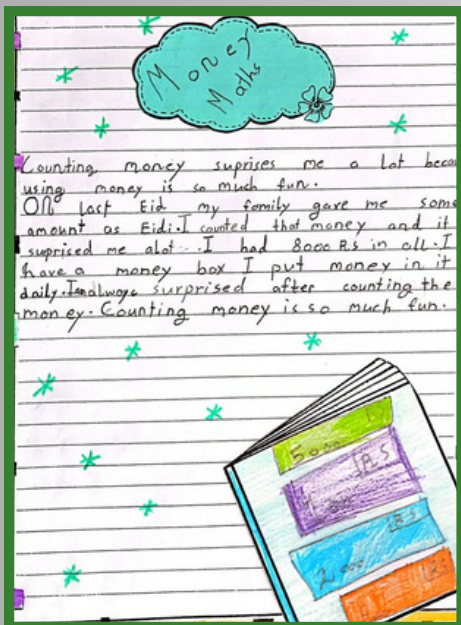 Money
Maths
Counting money suprises me a lot becau
using money is so much fun.
On last Eid my family gave me some
amount as Eidi. I counted that money and it
supriced me alot. I had 8000 Rs in all. I
have a money box I put money in it
daily. I always surprised after counting the
money. Counting money is so much fun.
5000
Rs
Rs
2000